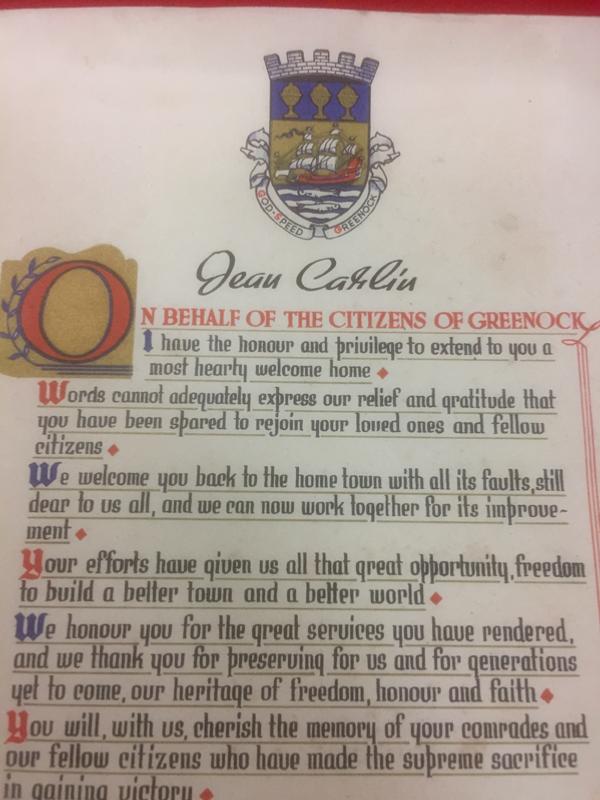 GOD·SPEED GREENOCK
Jean Carlin
ON BEHALF OF THE CITIZENS OF GREENOCK
I have the honour and privilege to extend to you a
most hearty welcome home
Words cannot adequately express our relief and gratitude that
you have been spared to rejoin your loved ones and fellow
citizens
We welcome you back to the home town with all its faults, still
dear to us all, and we can now work together for its improve-
ment
Your efforts have given us all that great opportunity, freedom
to build a better town and a better world
We honour you for the great services you have rendered,
and we thank you for preserving for us and for generations
yet to come, our heritage of freedom, honour and faith
You will, with us, cherish the memory of your comrades and
our fellow citizens who have made the supreme sacrifice
in gaining victory